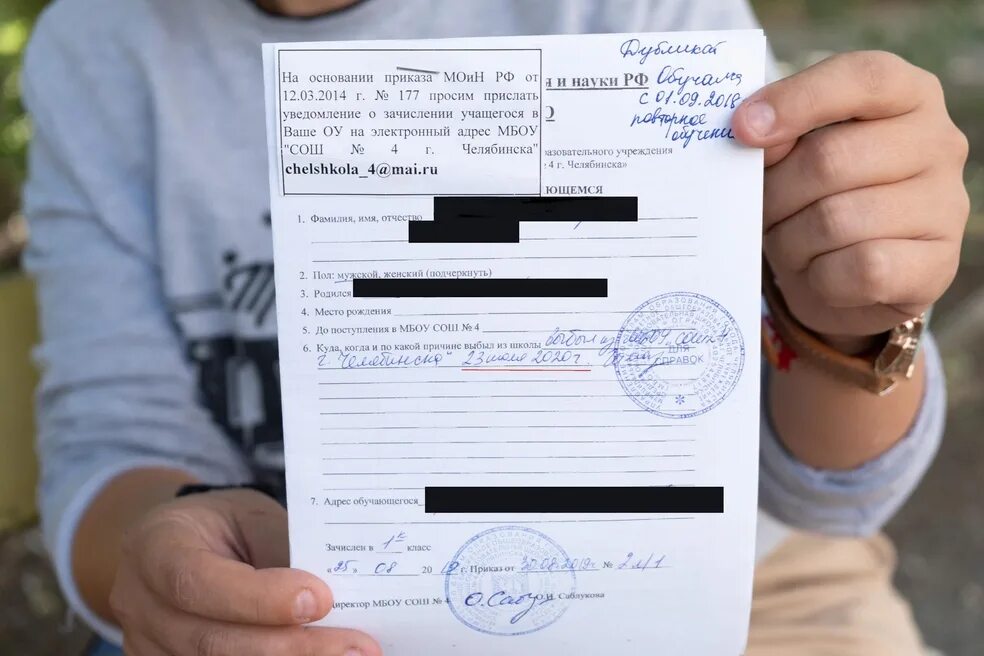 Дубликат
Обучался
с 01.09.2018
повторное
обучение
На основании приказа МОиН РФ от
12.03.2014 г. № 177 просим прислать
уведомление о зачислении учащегося в
Ваше ОУ на электронный адрес МБОУ
"СОШ № 4 г. Челябинска"
chelshkola_4@mai.ru
я и науки РФ
О
разовательного учреждения
4 г. Челябинска»
ЮЩЕМСЯ
1. Фамилия, имя, отчество
2. Пол: мужской, женский (подчеркнуть)
3. Родился
4. Место рождения
5. До поступления в МБОУ СОШ № 4
6. Куда, когда и по какой причине выбыл из школы выбыл из МБОУ
г. Челябинска" 23 июля 2020г.
ДЛЯ
СПРАВОК
7. Адрес обучающегося
Зачислен в 1 к класс
«25» 08 2019 г. Приказ от 30.08.2019г № 2л/1
Директор МБОУ СОШ № 4 О.И. Саблукова